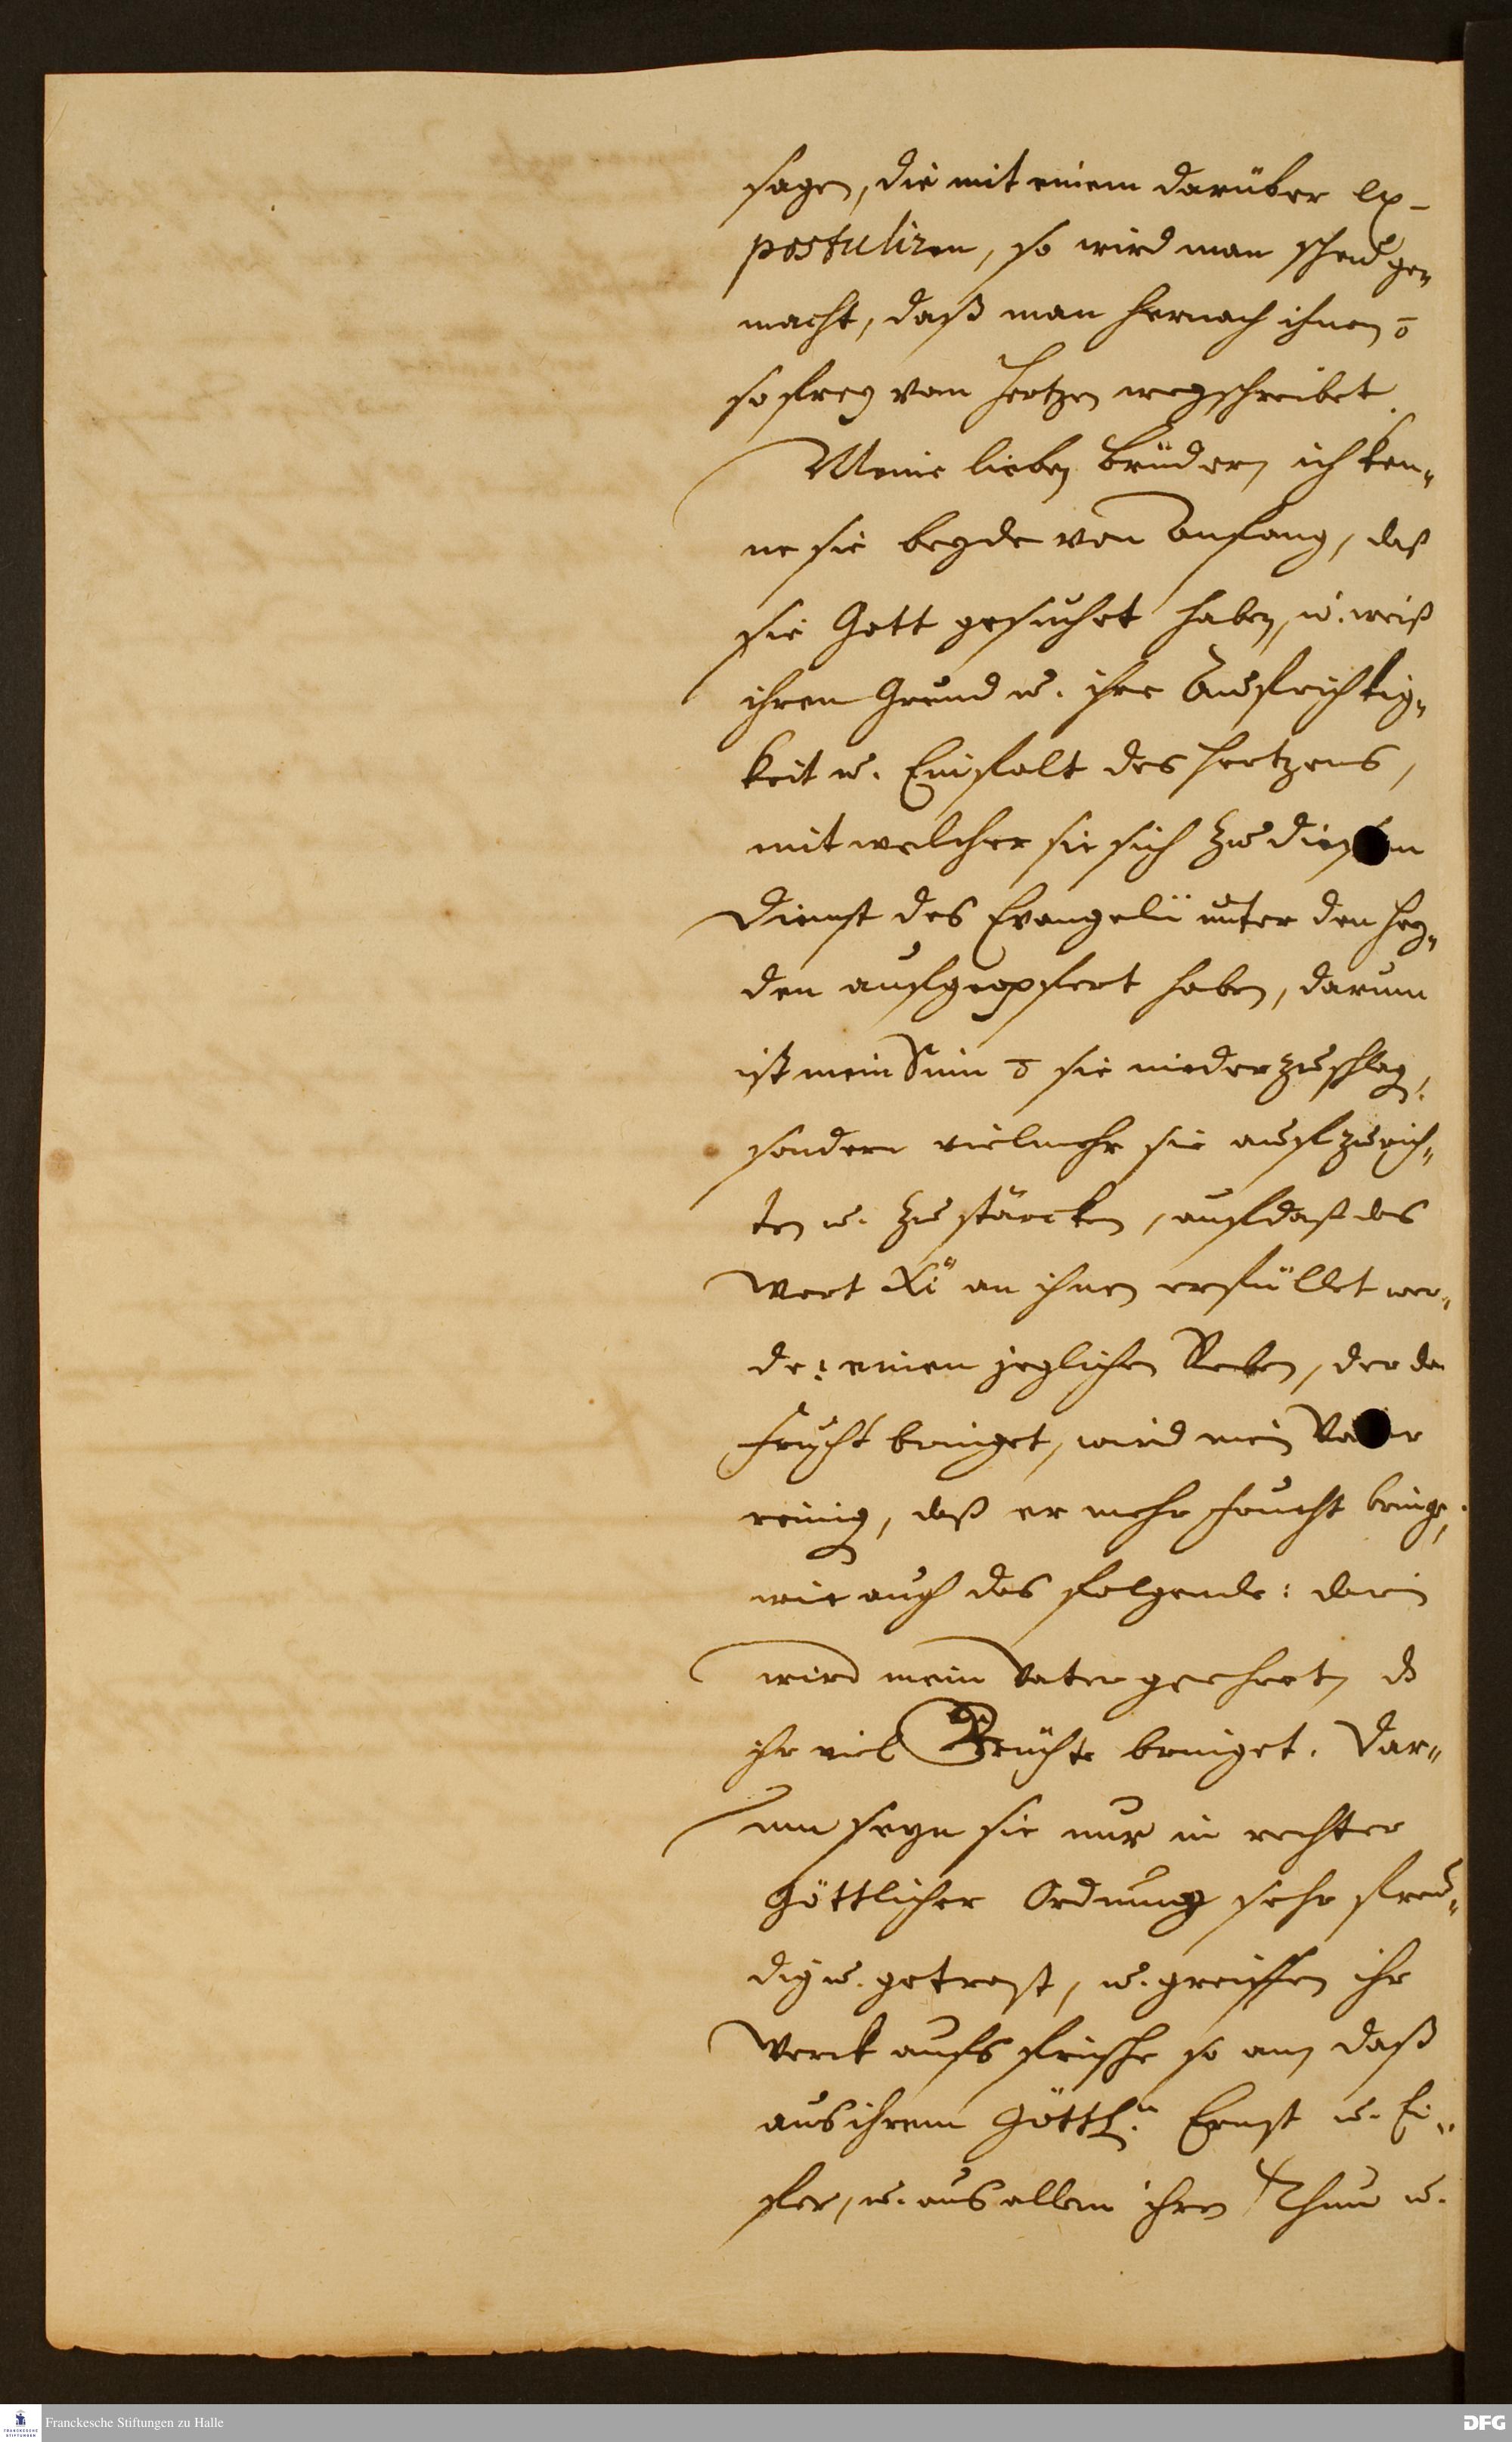 sagen, die mit einem darüber ex-
postuliren, so wird man scheu ge„
macht, daß man hernach ihnen ō
so frey vom Hertzen wegschreibet.
Meine lieben Brüder, ich ken„
ne sie beyde von Anfang, daß
sie Gott gesuchet haben, u. weiß
ihren Grund u. ihre Aufrichtig„
keit u. Einfalt des Hertzens,
mit welcher sie sich zu diesem
Dienst des Evangelii unter den Hey„
den aufgeopfert haben, darum
ist mein Sinn ō sie niederzuschlag.
sondern vielmehr sie aufzurich„
ten u. zu stärcken, auf daß das
Wort Xi an ihnen erfüllet wer„
de: einen jeglichen Reben, der da
Frucht bringet, wird mein Vater
reinig, daß er mehr Frucht bringe,
wie auch das folgende: darin
wird mein Vater geehret, dß
ihr viel Früchte bringet. Dar„
um seyn sie nur in rechter
Göttlicher Ordnung sehr freu„
dig u. getrost, u. greiffen ihr
Werck aufs frische so an, daß
aus ihrem Göttl. Ernst u. Ei„
fer, u. aus allem ihren Thun u.
Franckesche Stiftungen zu Halle
DFG